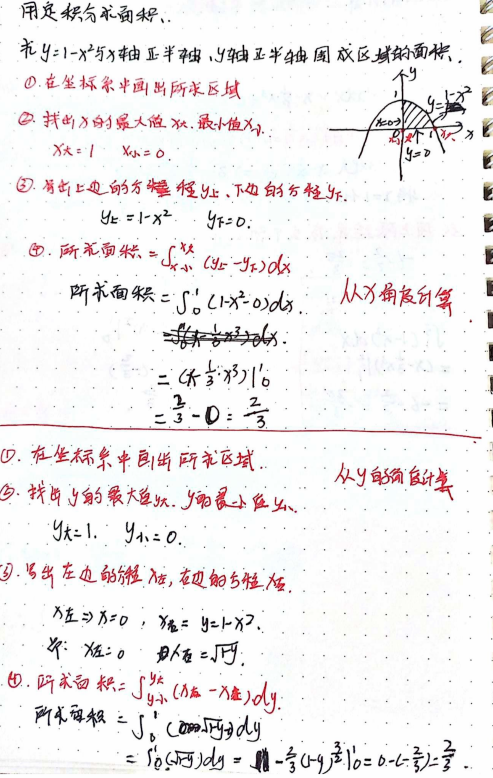 用定积分求面积.
求y=1-x²与x轴正半轴,y轴正半轴围成区域的面积.
①.在坐标系中画出所求区域
②.找出x的最大值x大.最小值x小.
x大=1 x小=0.
③.写出上边的方程y上、下边的方程y下.
y上=1-x² y下=0.
④.所求面积=∫x小^x大 (y上-y下)dx
所求面积=∫₀¹(1-x²-0)dx.
从x角度计算
=(x-1/3·x³)|₀¹
=2/3-0=2/3
y
1
y=1-x²
x=0
0
1
x
y=0
①.在坐标系中画出所求区域.
从y的角度计算
②.找出y的最大值y大.y的最小值y小.
y大=1. y小=0.
③.写出左边的方程x左,右边的方程x右.
x左⇒x=0,x右= y=1-x².
即: x左=0 x右=√1-y.
④.所求面积=∫y小^y大 (x右-x左)dy.
所求面积=∫₀¹(√1-y)dy
=∫₀¹(√1-y)dy= -2/3(1-y)^3/2|₀¹=0-(-2/3)=2/3.